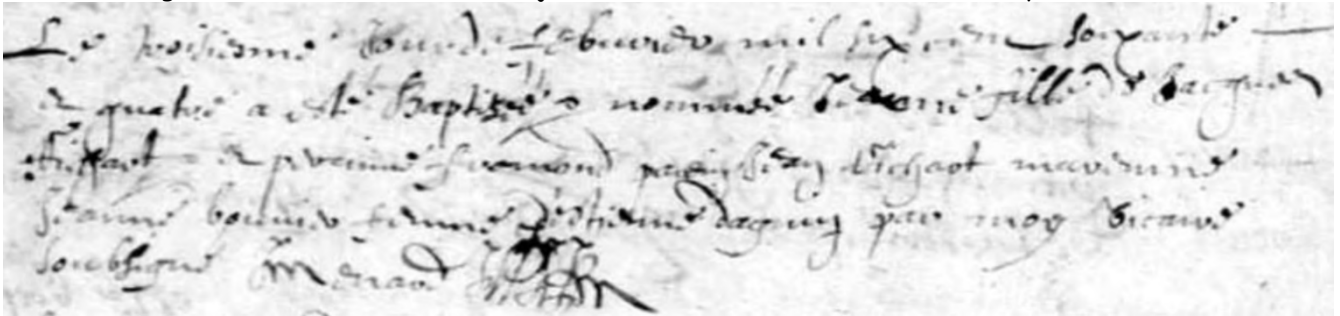 Le troisieme Jour de febuvier mil six cen soixante
et quatre a este Baptizée & nommée Jeanne fille de Jacques
et perrinne parin Jean Richart marenne
Jeanne bonnier femme d'estienne dagnin par moy vicaire
soubsigné Menard